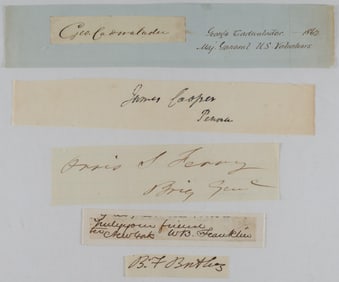 Geo. Cadwalader
George Cadwalader - 1862
Maj General U.S. Volunteers
James Cooper
Penna
Orris S Ferry
Brig Genl
Truly your friend
New York WB. Franklin
B. F Butler